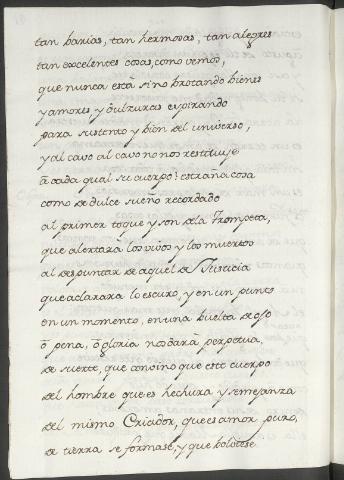 tan barias, tan hermosas, tan alegres
tan excelentes cosas, como vemos,
que nunca està sino brotando bienes
y amores y dulzuras espirando
para sustento y bien del universo,
y al cavo al cavo no nos restituye
à cada qual su cuerpo? estraña cosa
como de dulce sueño recordado
al primer toque y son dela Trompeta,
que alertarà los vivos y los muertos
al despuntar de aquel de Justicia
que aclarara lo escuro, y en un punto
en un momento, en una buelta de ojo
ò pena, ò gloria nos darà perpetua,
de suerte, que convino que este cuerpo
del hombre que es hechura y semejanza
del mismo Criador, que es amor puro,
de tierra se formase, y que bolviese